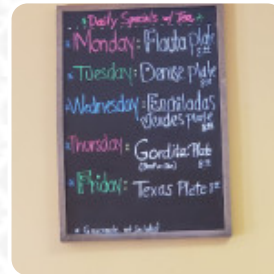 Daily Specials w/ Tea
Monday: Flauta plate
Tuesday: Denise plate
Wednesday: Enchiladas
Verdes plate
Thursday: Gordita Plate
Friday: Texas Plate